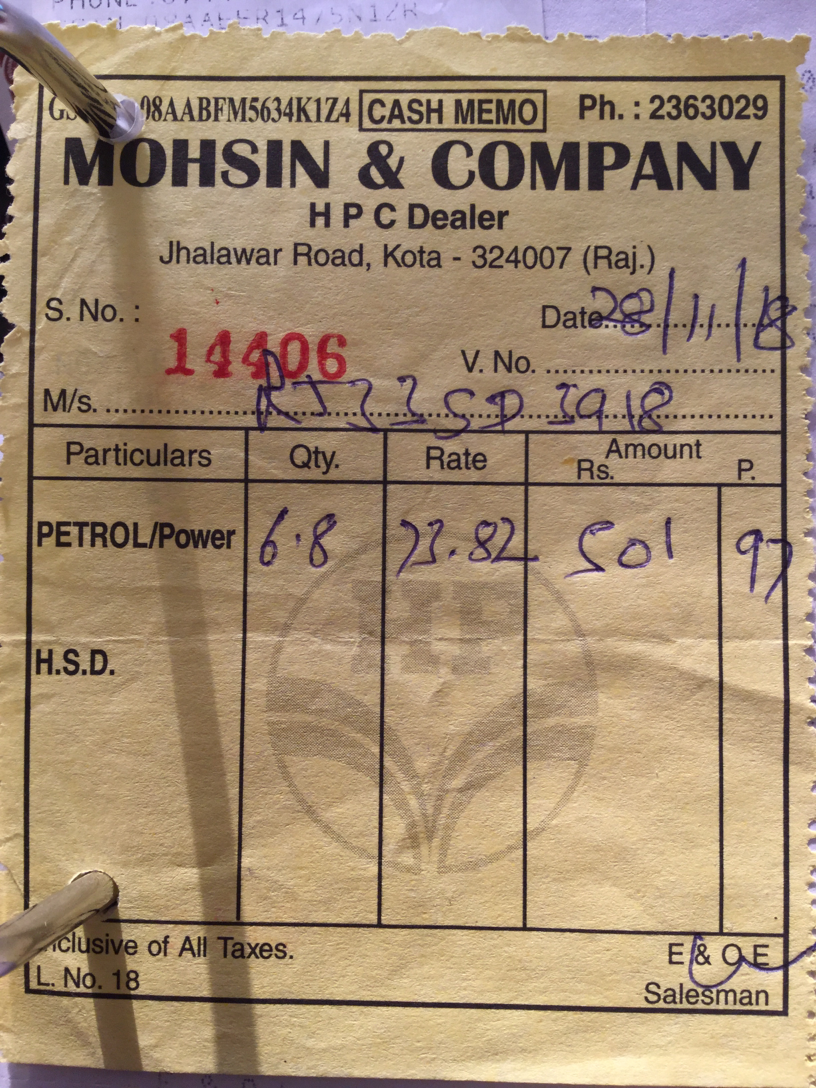 08AABFM5634K1Z4 CASH MEMO Ph. : 2363029
MOHSIN & COMPANY
H P C Dealer
Jhalawar Road, Kota - 324007 (Raj.)
S. No. : 14406 Date 28/11/18
V. No.
M/s. RJ 33 SD 3918
Particulars Qty. Rate Amount Rs. P.
PETROL/Power 6.8 73.82 501 97
HP
H.S.D.
Inclusive of All Taxes. E & O E
L. No. 18 Salesman